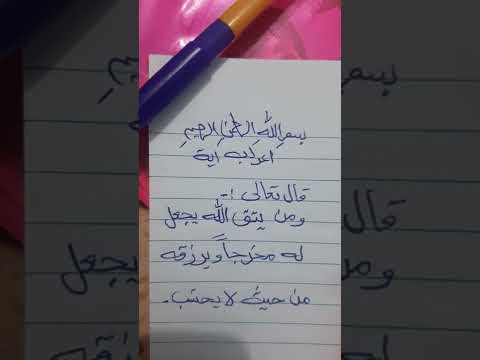 بسم الله الرحمن الرحيم
اعراب آية
قال تعالى :-
ومن يتق الله يجعل
له مخرجاً ويرزقه
من حيث لا يحتسب.